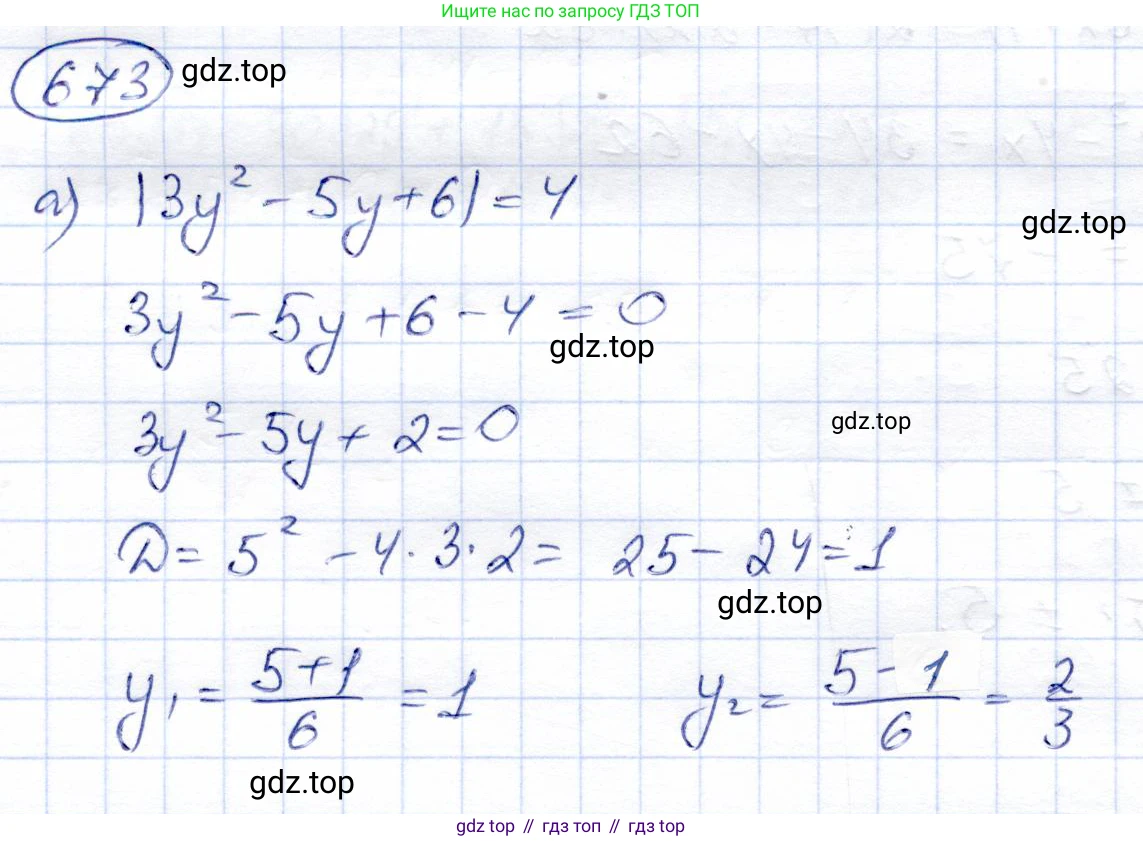 Ищите нас по запросу ГДЗ ТОП
673 gdz.top
а) |3y² - 5y + 6| = 4
gdz.top
3y² - 5y + 6 - 4 = 0
gdz.top
3y² - 5y + 2 = 0
gdz.top
D = 5² - 4 · 3 · 2 = 25 - 24 = 1
gdz.top
y₁ = (5+1)/6 = 1 y₂ = (5-1)/6 = 2/3
gdz.top
gdz top // гдз топ // гдз top